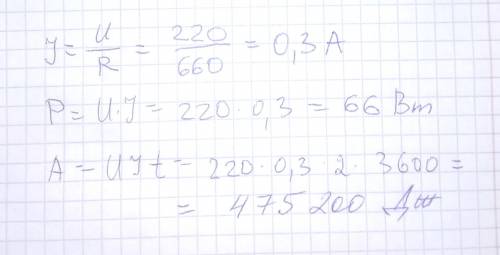 I = U/R = 220/660 = 0,3 А
P = U·I = 220·0,3 = 66 Вт
A = UIt = 220·0,3·2·3600 =
= 475 200 Дж